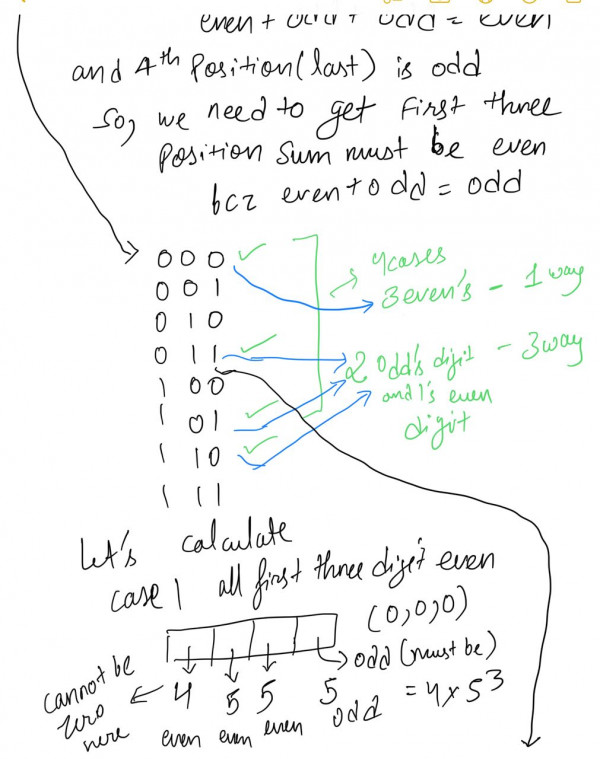 even + odd + odd = even
and 4th Position (last) is odd
So, we need to get First three
Position Sum must be even
bcz even + odd = odd
0 0 0
0 0 1
0 1 0
0 1 1
1 0 0
1 0 1
1 1 0
1 1 1
4cases
3 even's - 1 way
2 odd's digit - 3 way
and 1's even
digit
Let's calculate
case 1 all first three digit even
(0,0,0)
odd (must be)
cannot be
zero
here
4 5 5 5 = 4 x 5³
even even even odd